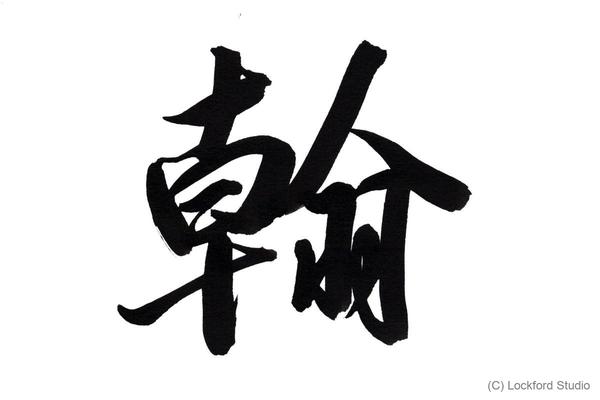 翰
(C) Lockford Studio